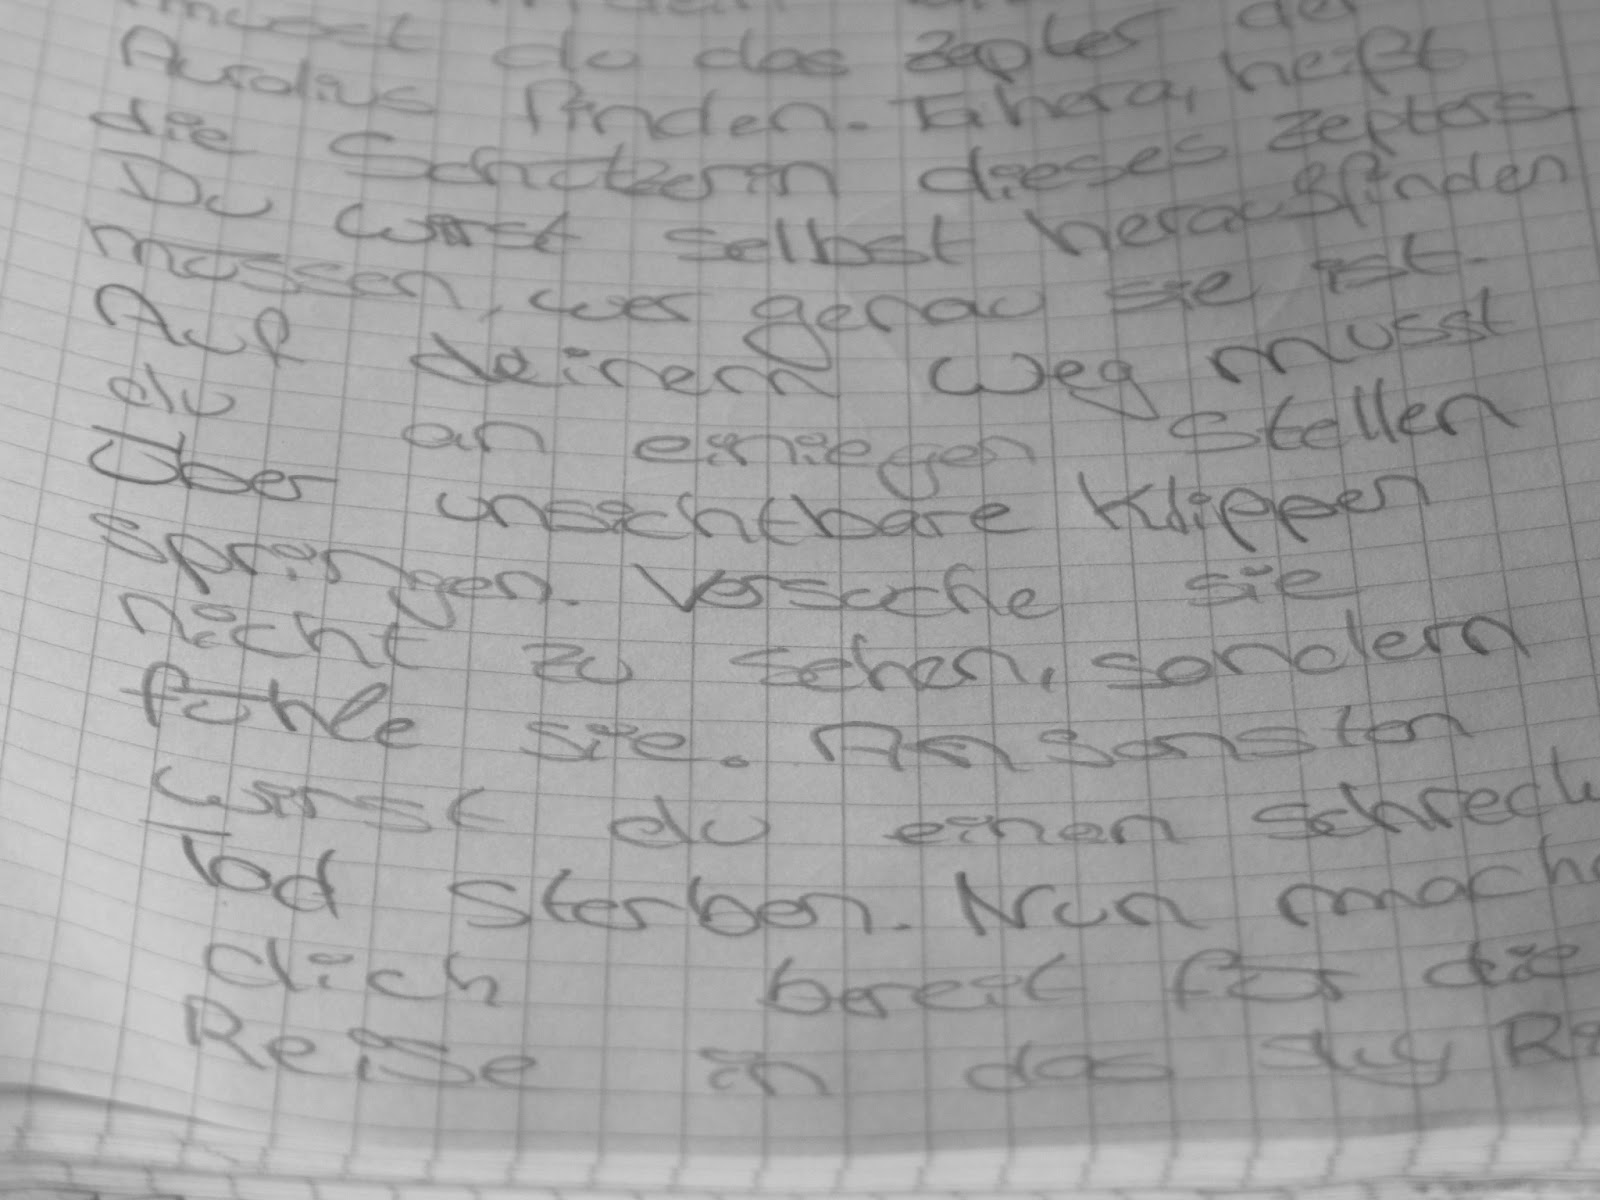 musst du das Zepter de
Aurdius finden. Tahera, heißt
die Schützerin dieses Zepters.
Du wirst selbst heraußfinden
müssen, wer genau sie ist.
Auf deinem Weg musst
du an einiegen Stellen
Über unsichtbare Klippen
springen. Versuche sie
nicht zu sehen, sondern
fühle sie. Ansonsten
wirst du einen schreck
Tod sterben. Nun mache
dich bereit für die
Reise in das Sky Re